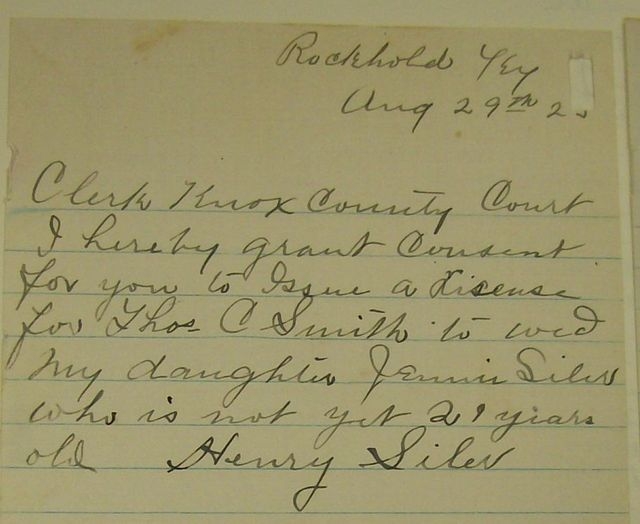 Rockhold Key
Aug 29th 2
Clerk Knox County Court
I hereby grant Consent
for you to Issue a Lisense
for Thos C Smith to wed
My daughter Jennie Siler
who is not yet 21 years
old Henry Siler